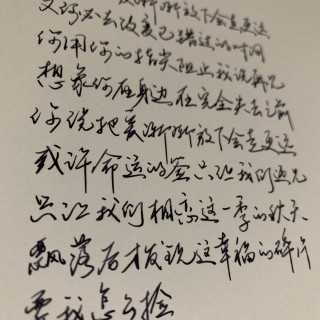 渐渐放下会走更远
又何必去改变已错过的时间
你用你的指尖阻止我说再见
想象你在身边在完全失去之前
你说把爱渐渐放下会走更远
或许命运的签只让我们遇见
只让我们相恋这一季的秋天
飘落后才发现这幸福的碎片
要我怎么捡